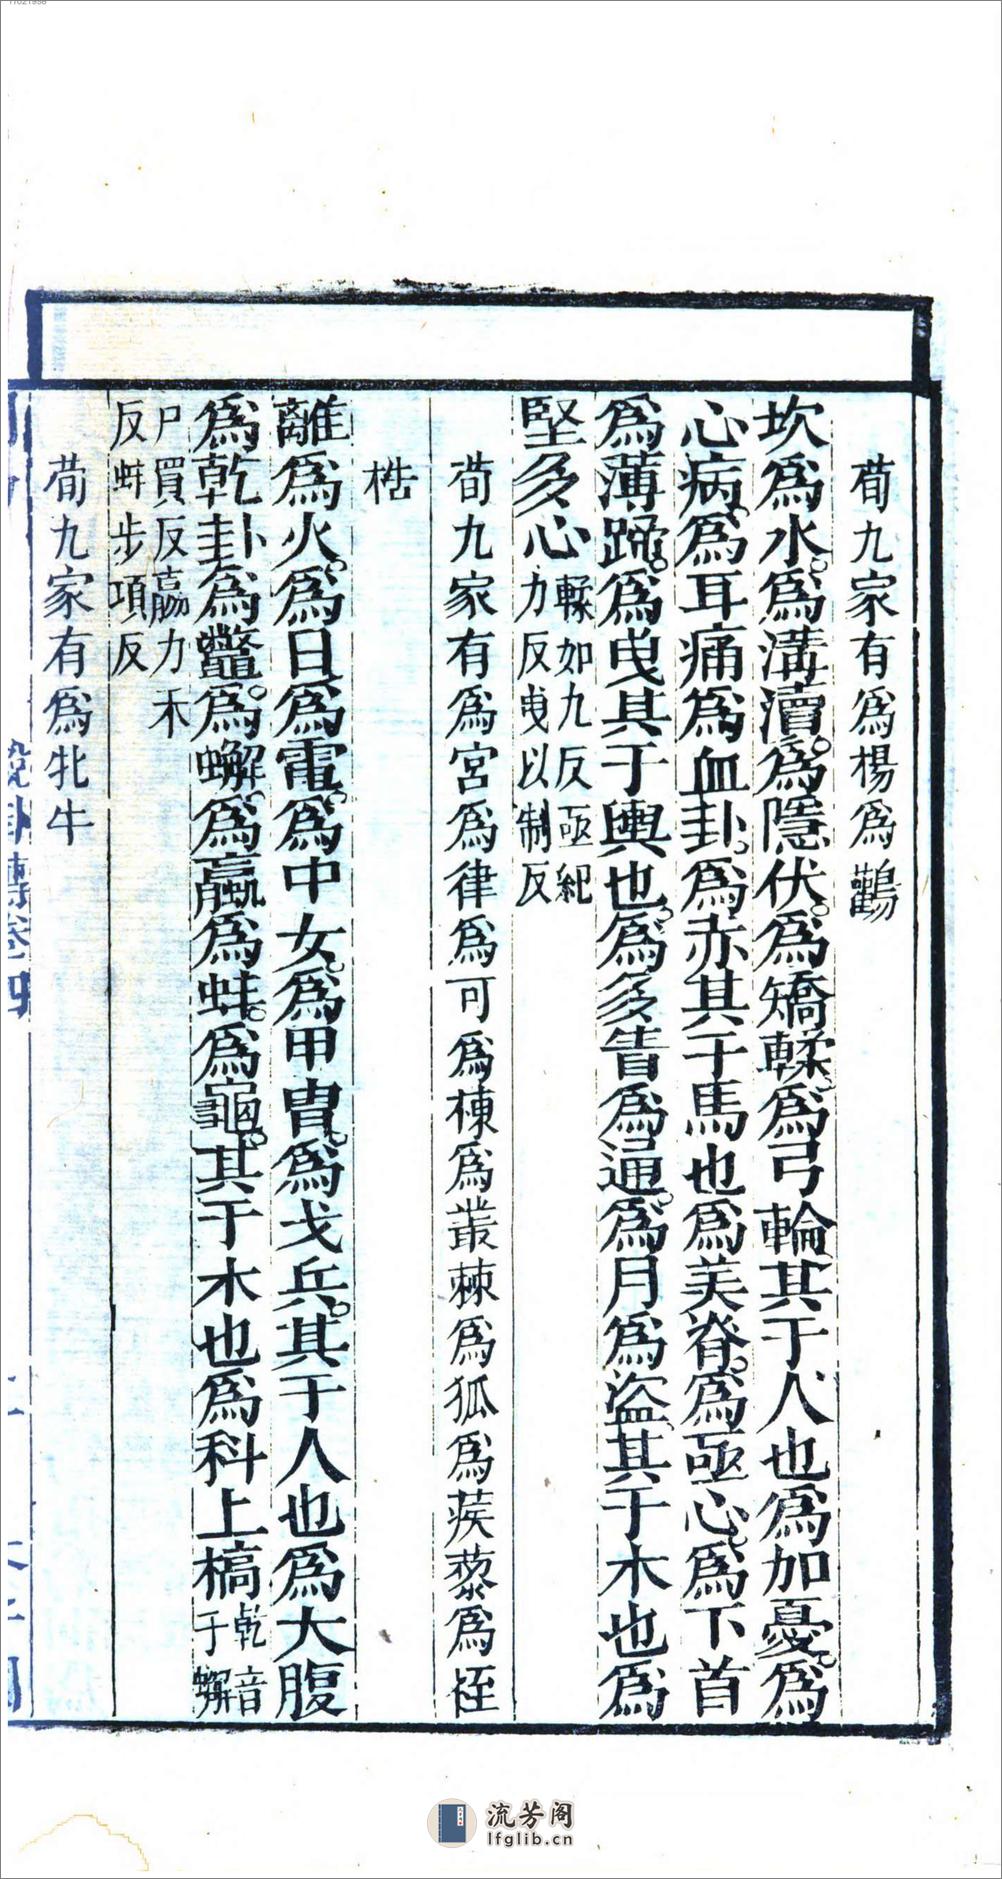 荀九家有爲楊爲鸛
坎爲水爲溝瀆爲隱伏爲矯輮爲弓輪其于人也爲加憂爲
心病爲耳痛爲血卦爲赤其于馬也爲美脊爲亟心爲下首
爲薄蹄爲曳其于輿也爲多眚爲通爲月爲盜其于木也爲
堅多心輮如九反亟紀
力反曳以制反
荀九家有爲宮爲律爲可爲棟爲叢棘爲狐爲蒺藜爲桎
梏
離爲火爲日爲電爲中女爲甲冑爲戈兵其于人也爲大腹
爲乾卦爲鼈爲蟹爲蠃爲蚌爲龜其于木也爲科上槁乾音
干蟹
戶買反蠃力禾
反蚌步項反
荀九家有爲牝牛
說卦傳卷四
流芳阁
lfglib.cn